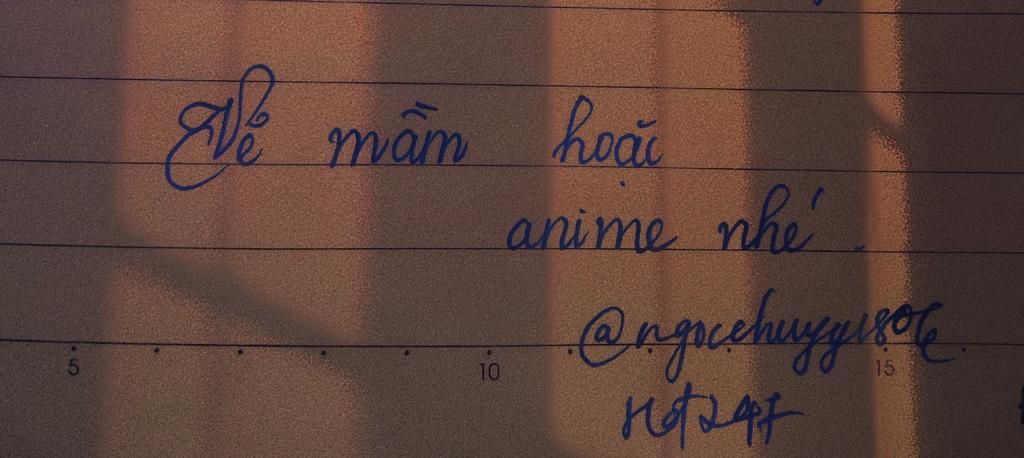 Vẽ mầm hoặc
anime nhé.
@ngocchuyy1806
Hđt247
5 10 15